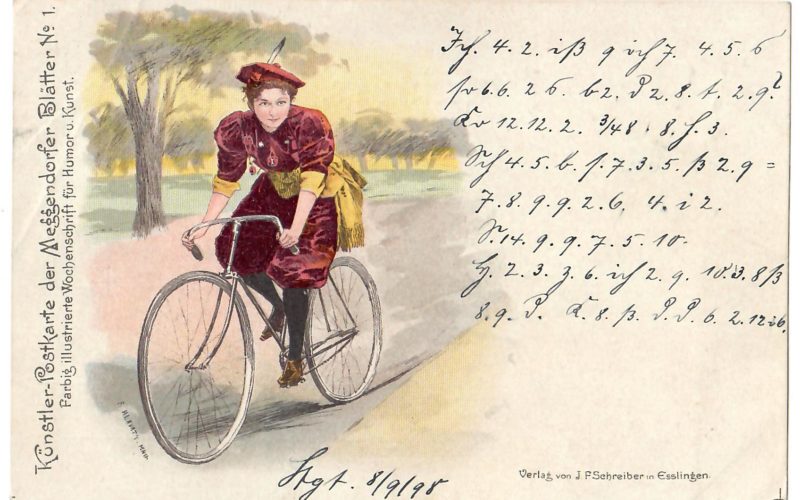 Künstler-Postkarte der Meggendorfer Blätter No 1.
Farbig illustrierte Wochenschrift für Humor u. Kunst.
Ich. 4. 2. iß 9 ich 7. 4. 5. 6
so 6. 6. 2 6. b 2. d 2. 8. t. 2. 9?
Ko 12. 12. 2. 3/48. 8. h. 3.
Sch 4. 5. b. s. 7. 3. 5. ß 2. 9 =
7. 8. 9. 9. 2. 6. 4. i 2.
S. 14. 9. 9. 7. 5. 10.
H. 2. 3. z. 6. ich 2. 9. 10. 3. 8 ß
8. 9. d. K. 8. ß. d. d. 6. 2. 12 i 6.
Stgt. 8/9/98
Verlag von J. F. Schreiber in Esslingen.